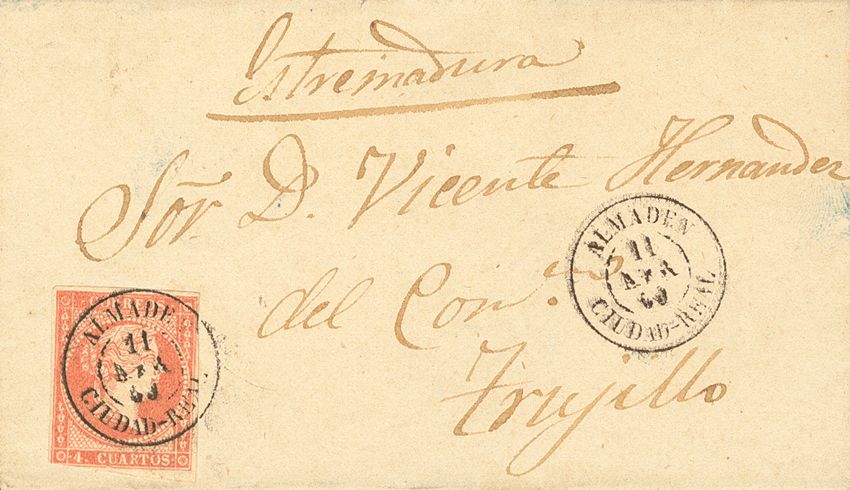 Estremadura
Sõr. D. Vicente Hernandez
del Com.º
Trujillo
ALMADEN
11
ABR
60
CIUDAD-REAL
ALMADE
11
ABR
60
CIUDAD-REAL
4. CUARTOS